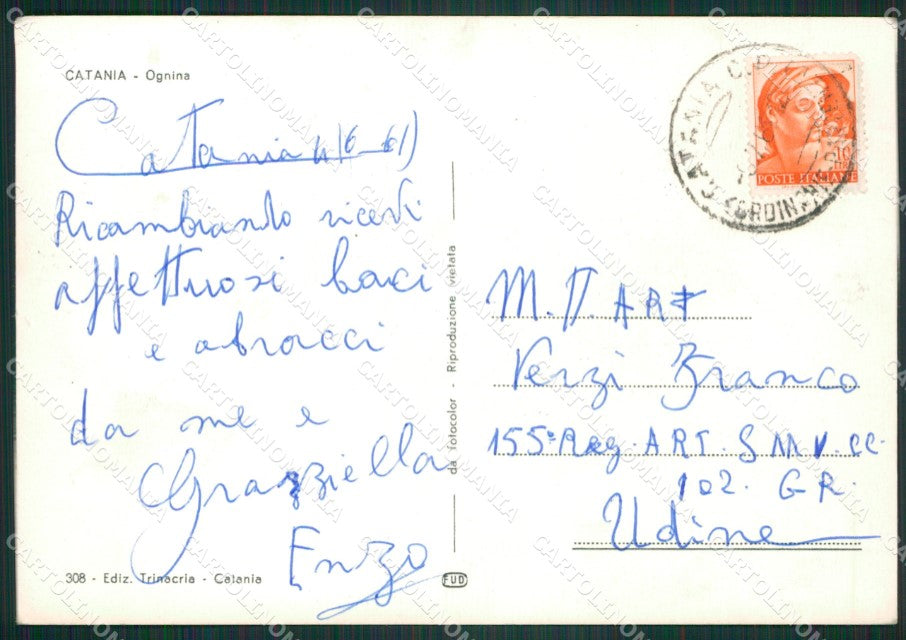 CATANIA - Ognina
Catania 4/6-61)
Ricambiando ricevi
affettuosi baci
e abracci
da me e
Grazziella
Enzo
308 - Ediz. Trinacria - Catania
da fotocolor - Riproduzione vietata
FUD
CATANIA C.P.
POSTE ITALIANE
M. ART
Verzi Franco
155° Reg. ART. S M V. CC.
102. G R.
Udine
CARTOLINOMANIA